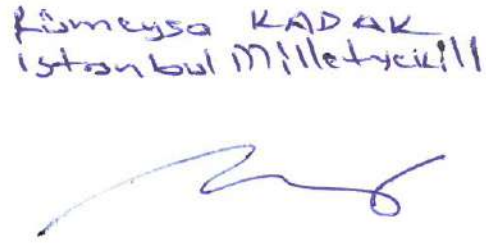 Rümeysa KADAK
İstanbul Milletvekili